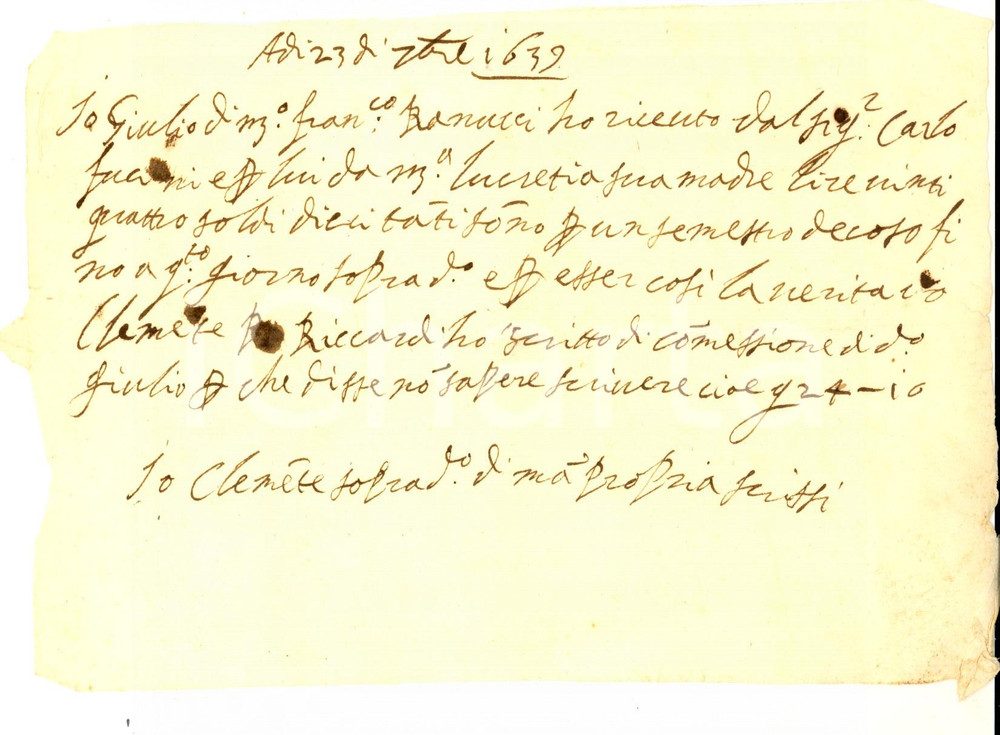 Adi 23 di 7bre 1639
Io Giulio di m.o fran.co Ranucci ho riceuto dal sig.r Carlo
e p lui da m.a lucretia sua madre lire uinti
quattro soldi dieci tāti sōno p un semestro de coso fi
no a q.to giorno soprad.o e p esser cosi la uerita io
Clemēte Riccardi ho scritto di cōmessione di d.o
Giulio p che disse nō sapere scriuere cioe 24 – 10
Io Clemēte soprad.o di mā propria scrissi
iCharta